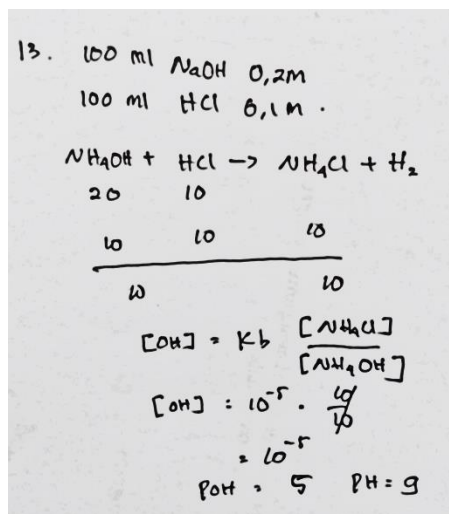 13. 100 ml NaOH 0,2M
100 ml HCl 0,1M.
NH4OH + HCl -> NH4Cl + H2
20 10
10 10 10
10 10
[OH] = Kb [NH4Cl]
[NH4OH]
[OH] = 10^-5 . 10/10
= 10^-5
POH = 5 PH = 9